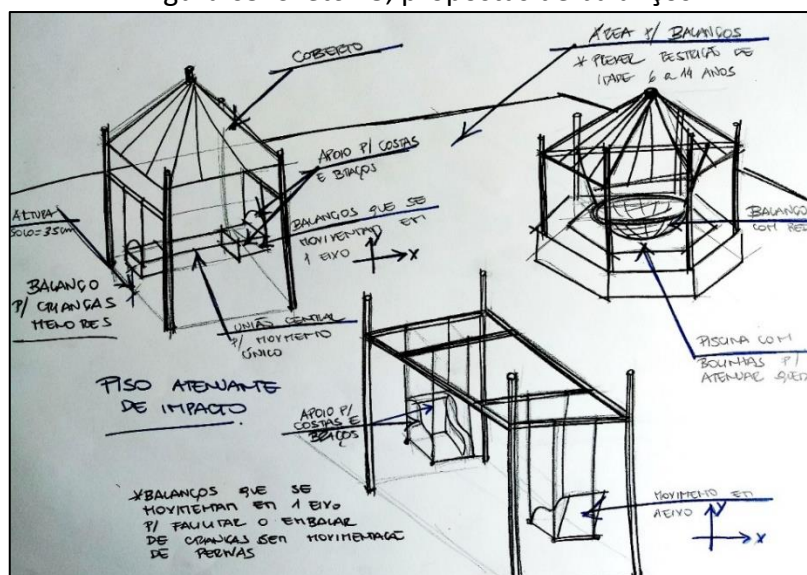 COBERTO
ÁREA P/ BALANÇOS
* PREVER RESTRIÇÃO DE
IDADE 6 a 14 ANOS
APOIO P/ COSTAS
E BRAÇOS
ALTURA
SOLO=35cm
BALANÇOS QUE SE
MOVIMENTAM EM
1 EIXO
Y
X
BALANÇO
P/ CRIANÇAS
MENORES
UNIÃO CENTRAL
P/ MOVIMENTO
ÚNICO
BALANÇO
COM REDE
PISCINA COM
BOLINHAS P/
ATENUAR QUEDA
PISO ATENUANTE
DE IMPACTO
APOIO P/
COSTAS E
BRAÇOS
* BALANÇOS QUE SE
MOVIMENTAM EM 1 EIXO
P/ FACILITAR O EMBALAR
DE CRIANÇAS SEM MOVIMENTAÇÃO
DE PERNAS
MOVIMENTO EM
EIXO
Y
X